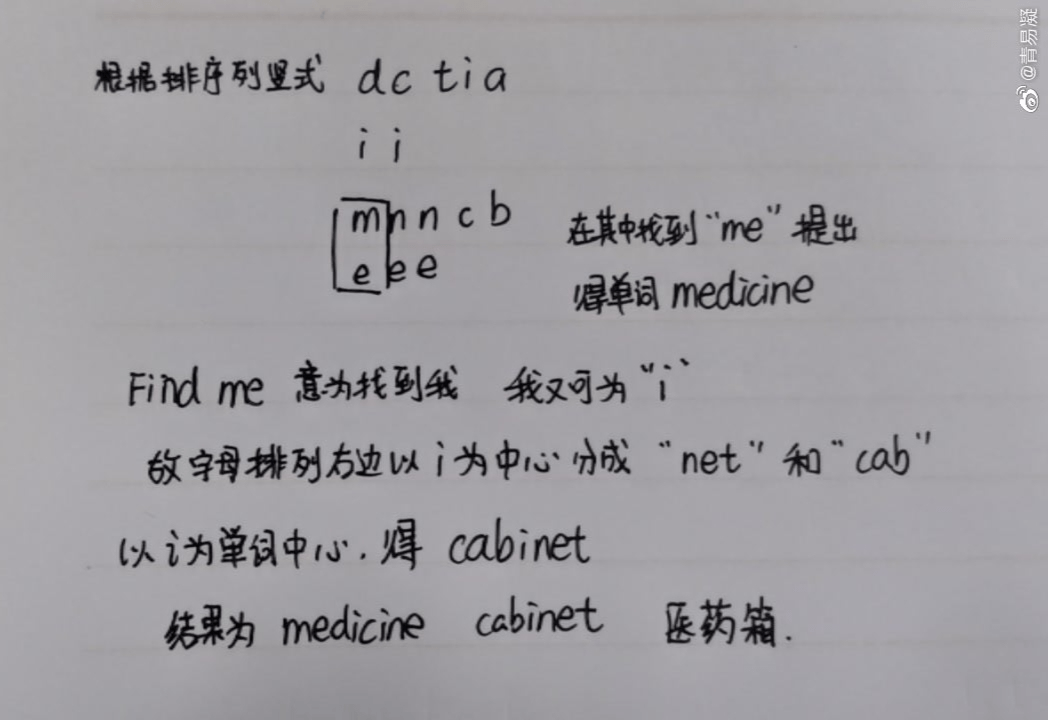 根据排序列竖式 dc tia
i i
mnncb 在其中找到“me”提出
eee 得单词 medicine
Find me 意为找到我 我又可为“i”
故字母排列右边以 i 为中心分成“net”和“cab”
以 i 为单词中心.得 cabinet
结果为 medicine cabinet 医药箱.
@青易凝